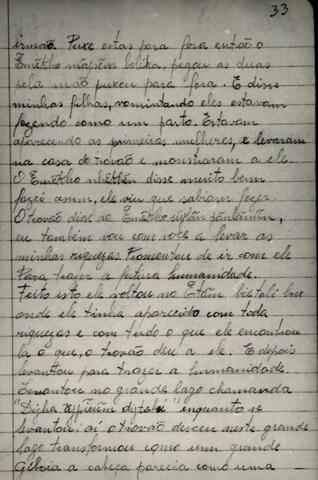 33
irmão. Puxe estas para fora então o
Emẽkho mahsẽn bolika, pegou as duas
pela mão puxou para fora. E disse
minhas filhas, vomintando eles estavam
fazendo como um parto. Estavam
aparecendo as primeiras mulheres, e levaram
na casa do trovão e monstraram a ele.
O Emẽkho disse muito bem
fazei assim, ele viu que sabiam fazer.
O trovão disse ao Emẽkho
eu também vou com você a levar as
minhas riquezas. Promenteu de ir com ele
Para trazer a futura humanidade.
Feito isto ele voltou no
onde ele tinha aparecido com toda
riquezas e com tudo o que ele encontrou
la o que, o trovão deu a ele. E depois
levantou para trazer a humanidade.
Levantou no grande lago chamanda
"Diha enquanto se
levantou; aí o trovão desceu neste grande
lago transformou como um grande
Giboia a cabeça parecia como uma